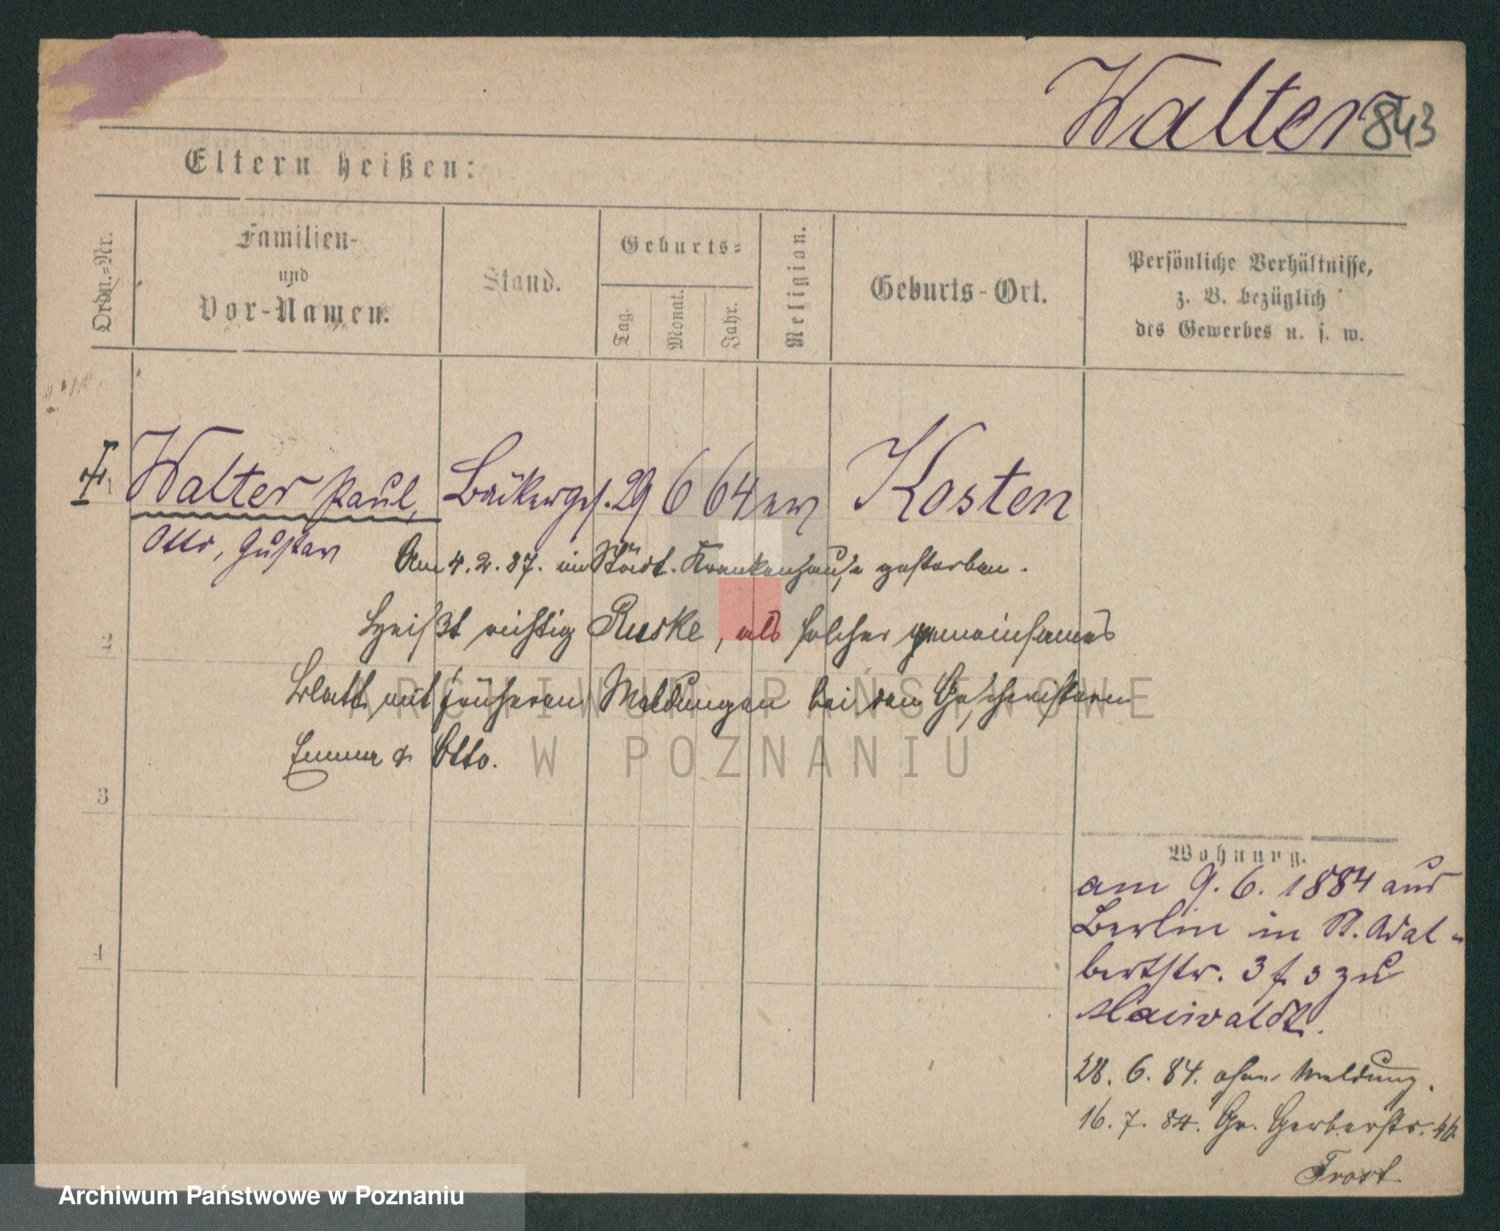 Walter 843
Eltern heißen:
Ordn.-Nr.
Familien-
und
Vor-Namen.
Stand.
Geburts-
Tag.
Monat.
Jahr.
Religion.
Geburts-Ort.
Persönliche Verhältnisse,
z. B. bezüglich
des Gewerbes u. s. w.
Walter Paul, Bäckerges. 29 6 64 ev Kosten
Otto, Gustav
Am 4. 2. 87. im Städt. Krankenhause gestorben.
2
Heißt richtig Ruske, als solcher gemeinsames
Blatt mit früheren Meldungen bei den Geschwistern
Emma & Otto.
ARCHIWUM PAŃSTWOWE
W POZNANIU
3
4
Wohnung.
am 9. 6. 1884 aus
Berlin in St. Adal-
bertstr. 3 f. 3 zu
Maiwaldt.
28. 6. 84. ohne Meldung.
16. 7. 84. Gr. Gerberstr. 46
Frost
Archiwum Państwowe w Poznaniu